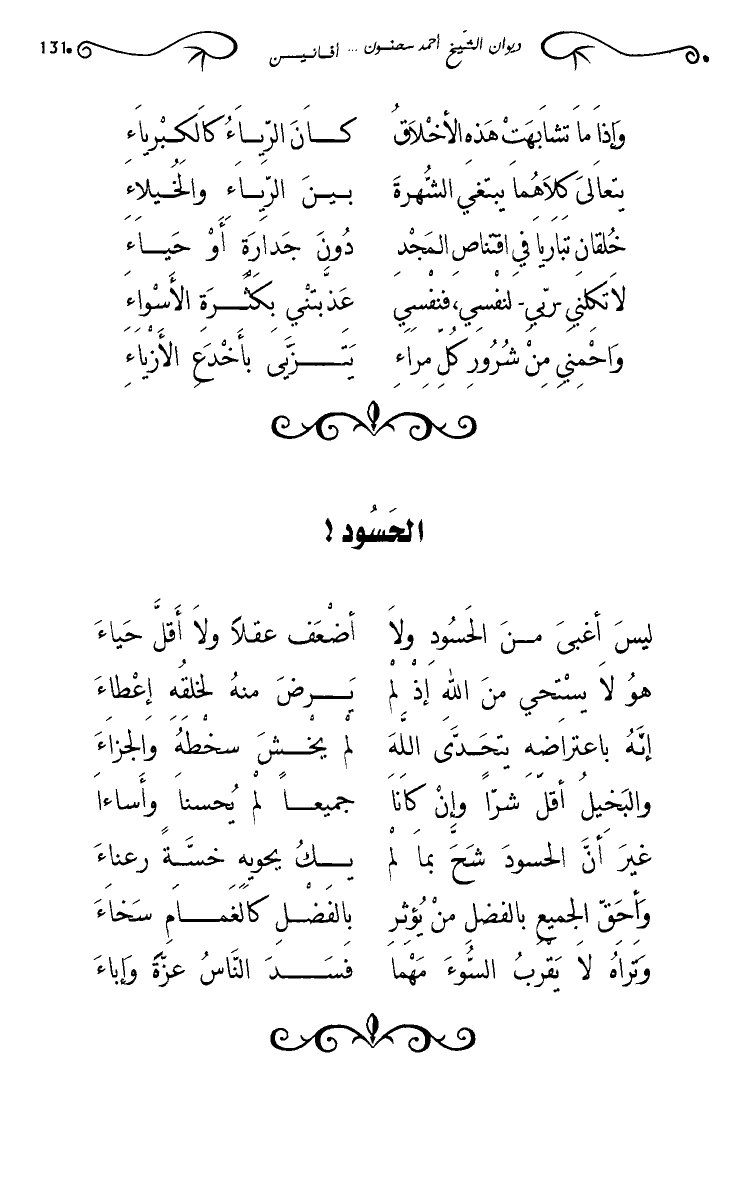 131 ديوان الشّيخ أحمد سحنون ... أفانيـــن
وَإذاَ ماَ تشاَبهَتْ هَذهِ الأخْلاَقُ كـــانَ الرّيـاءُ كاَلكـبْرياَء
يتعالىَ كلاَهُما يبتغي الشُّهرةَ بـينَ الرّيـاء والخُيـلاء
خُلقان تباَريا في اقتناصِ المَجْد دُونَ جَدارَةٍ أوْ حَيـاء
لاَ تكلني -ربّي- لنفْسي، فنفْسِي عَذَّبتني بِكَثْـرَةِ الأسْواء
وَاحْمِني مِنْ شُرُورِ كُلّ مِراء يَتَــزَيَّى بأخْدَعِ الأزْياَء
الحَسُود !
ليسَ أغبىَ مـنَ الحَسُودِ ولاَ أضْعَف عقلاً ولاَ أقلَّ حَياءَ
هوُ لاَ يسْتحي منَ اللهِ إذْ لمْ يَـرضَ منهُ لخلقُه إعْطاءَ
إنَّهُ باعتراضهِ يتحَـدَّى اللَّهَ لمْ يخْـشَ سخْطهُ والجزاءَ
والبَخيلُ أقلّ شرّاً وإنْ كاَناَ جميعـاً لمْ يُحسناَ وأساءا
غيرَ أنَّ الحسودَ شَحَّ بماَ لمْ يـكُ يحويهِ خسَّـةً رعناءَ
وأحَقّ الجميعِ بالفضلِ منْ يُؤثرِ بالفَضْـلِ كالغَمـامِ سَخاءَ
وَتراهُ لا يَقْربُ السُّوءَ مَهْما فسَـدَ النَّاسُ عزّةً وَإباءَ